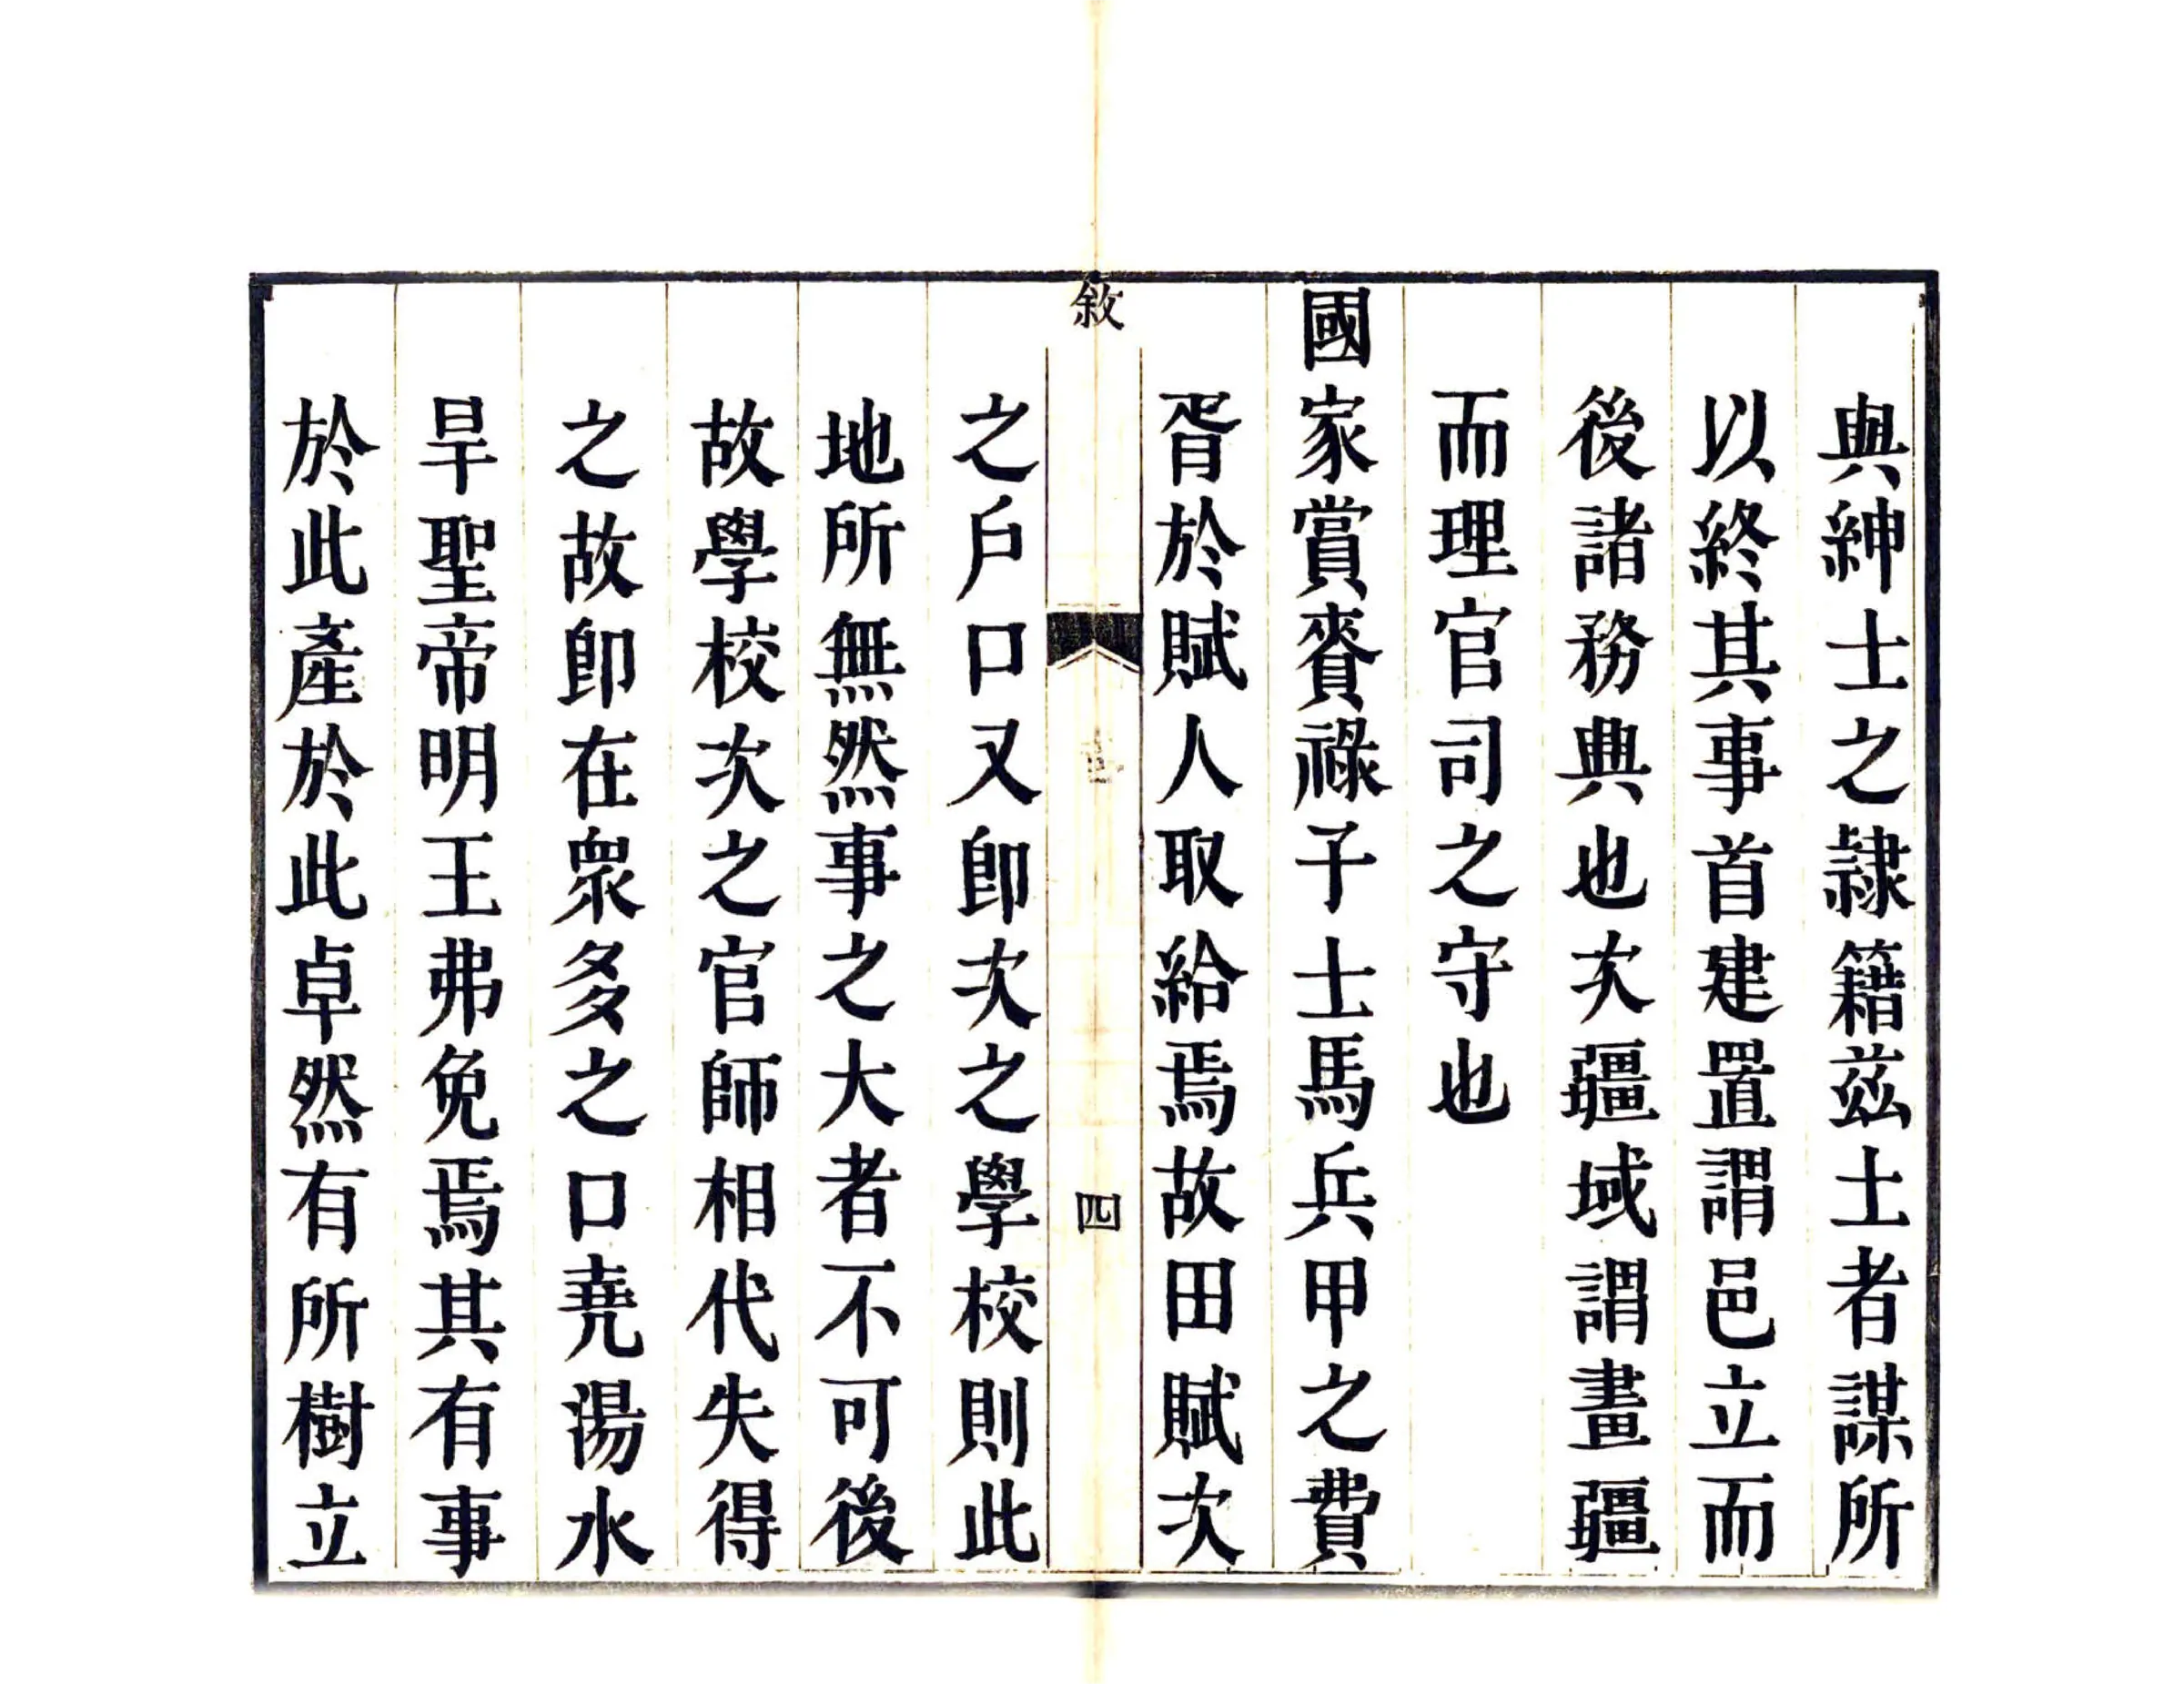 與紳士之隷籍兹土者謀所
以終其事首建置謂邑立而
後諸務典也次疆域謂畫疆
而理官司之守也
國家賞賚祿予士馬兵甲之費
胥於賦人取給焉故田賦次
敘
四
之戶口又卽次之學校則此
地所無然事之大者不可後
故學校次之官師相代失得
之故卽在衆多之口堯湯水
旱聖帝明王弗免焉其有事
於此產於此卓然有所樹立